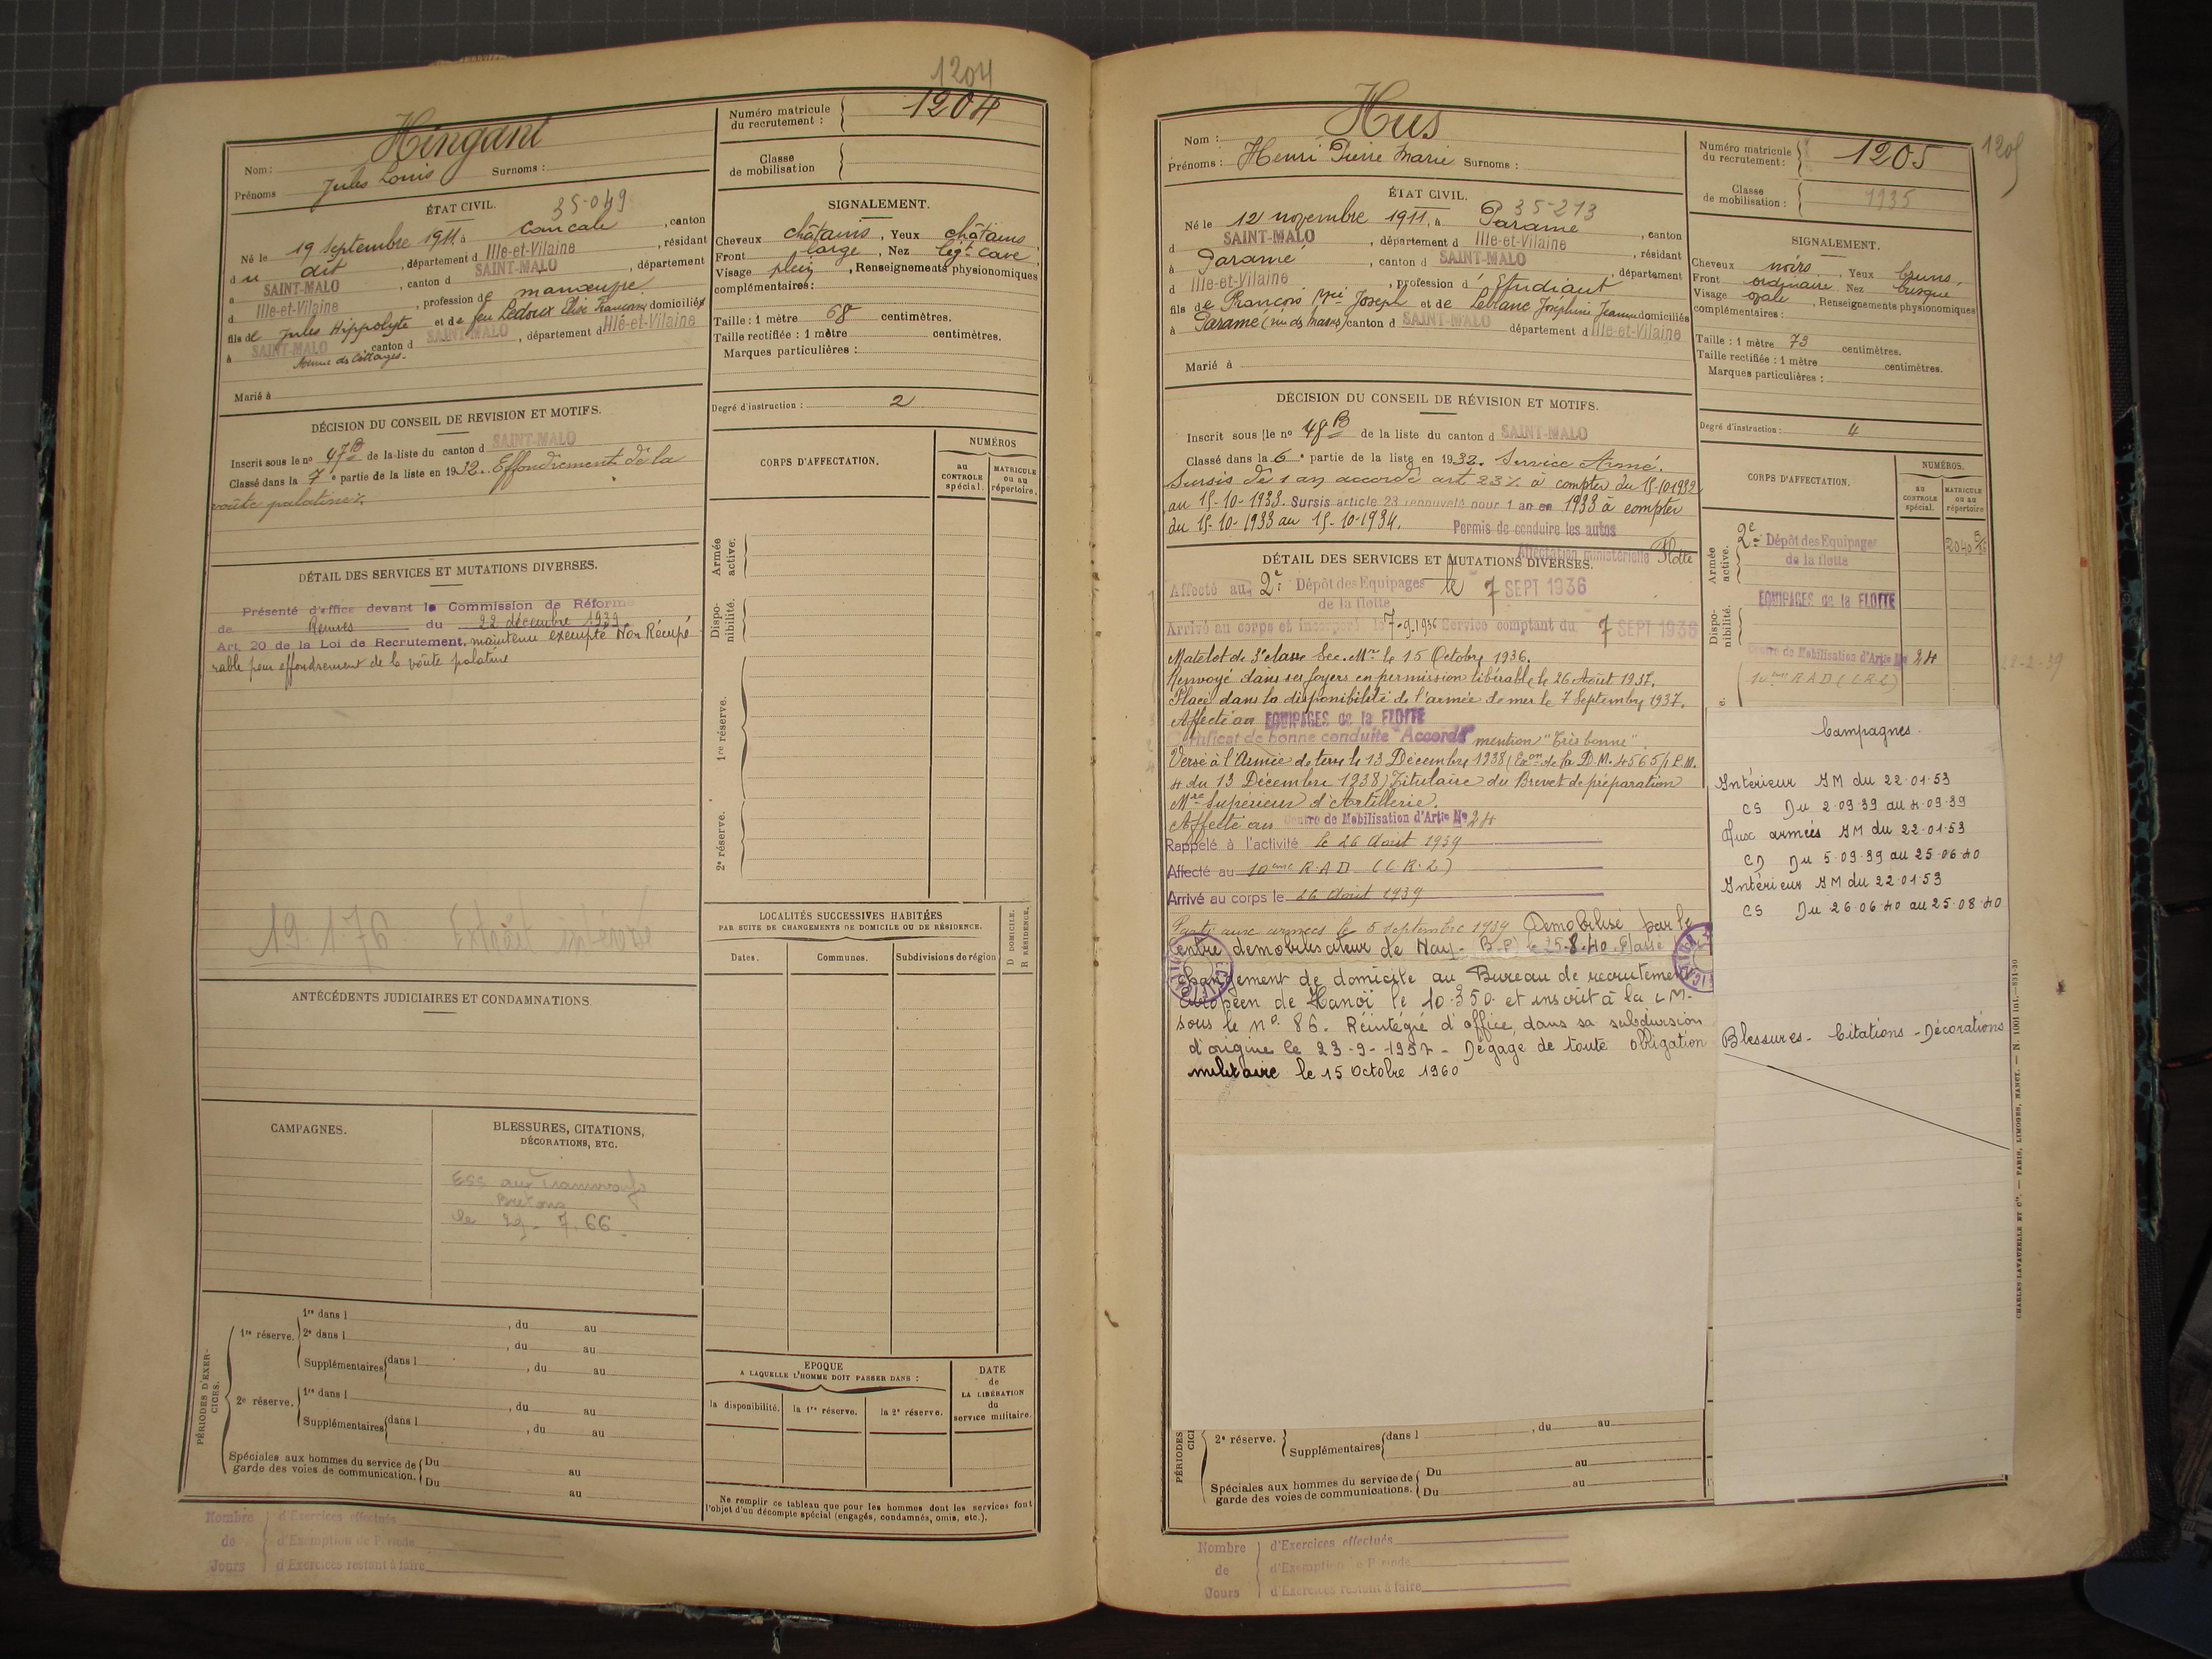 1204
Nom : Hingant
Prénoms Jules Louis Surnoms :
Numéro matricule du recrutement : 1204
Classe de mobilisation
ÉTAT CIVIL.
35-049
Né le 19 Septembre 1911 à Cancale, canton
du dit, département d Ille-et-Vilaine, résidant
à SAINT-MALO, canton d SAINT-MALO, département
d Ille-et-Vilaine, profession de manœuvre
fils de Jules Hippolyte et de feu Ledoux Elise Françoise domiciliés
à SAINT-MALO canton d SAINT-MALO, département d Ille-et-Vilaine
Avenue des Cottages.
Marié à
SIGNALEMENT.
Cheveux châtains, Yeux châtains,
Front large, Nez légt cavé,
Visage plein, Renseignements physionomiques
complémentaires :
Taille : 1 mètre 68 centimètres.
Taille rectifiée : 1 mètre centimètres.
Marques particulières :
Degré d'instruction : 2
DÉCISION DU CONSEIL DE REVISION ET MOTIFS.
Inscrit sous le n° 47B de la liste du canton d SAINT-MALO
Classé dans la 7e partie de la liste en 1932. Effondrement de la
voûte palatine
DÉTAIL DES SERVICES ET MUTATIONS DIVERSES.
Présenté d'office devant la Commission de Réforme
de Rennes du 22 décembre 1939
Art. 20 de la Loi de Recrutement, maintenu exempté Non Récupé
rable pour effondrement de la voûte palatine
19.1.76 Extrait
ANTÉCÉDENTS JUDICIAIRES ET CONDAMNATIONS
CAMPAGNES.
BLESSURES, CITATIONS,
DÉCORATIONS, ETC.
ESS aux Tramways
Bretons
le 7.66
CORPS D'AFFECTATION.
NUMÉROS
au CONTROLE spécial.
MATRICULE ou au répertoire.
Armée active.
Disponibilité.
1re réserve.
2e réserve.
LOCALITÉS SUCCESSIVES HABITÉES
PAR SUITE DE CHANGEMENTS DE DOMICILE OU DE RÉSIDENCE.
D DOMICILE.
R RÉSIDENCE.
Dates. Communes. Subdivisions de région
PÉRIODES D'EXERCICES.
1re réserve. 1re dans l , du au
2e dans l , du au
Supplémentaires dans l , du au
2e réserve. 1re dans l , du au
Supplémentaires dans l , du au
Spéciales aux hommes du service de garde des voies de communication. Du au
Du au
EPOQUE
A LAQUELLE L'HOMME DOIT PASSER DANS :
la disponibilité. la 1re réserve. la 2e réserve.
DATE
de
LA LIBÉRATION
du
service militaire.
Ne remplir ce tableau que pour les hommes dont les services font
l'objet d'un décompte spécial (engagés, condamnés, omis, etc.).
Nombre de Jours
d'Exercices effectués
d'Exemption de Période
d'Exercices restant à faire
1205
Nom : Hus
Prénoms : Henri Pierre Marie Surnoms :
Numéro matricule du recrutement : 1205
Classe de mobilisation : 1935
ÉTAT CIVIL.
35-213
Né le 12 novembre 1911, à Paramé, canton
d SAINT-MALO, département d Ille-et-Vilaine, résidant
à Paramé, canton d SAINT-MALO, département
d Ille-et-Vilaine, profession d'Etudiant
fils de François Joseph et de Joséphine Jeanne domiciliés
à Paramé canton d SAINT-MALO département d Ille-et-Vilaine
Marié à
SIGNALEMENT.
Cheveux noirs, Yeux bruns,
Front ordinaire Nez busqué
Visage ovale, Renseignements physionomiques
complémentaires :
Taille : 1 mètre 73 centimètres.
Taille rectifiée : 1 mètre centimètres.
Marques particulières :
Degré d'instruction : 4
DÉCISION DU CONSEIL DE RÉVISION ET MOTIFS.
Inscrit sous le n° 48B de la liste du canton d SAINT-MALO
Classé dans la 6e partie de la liste en 1932. Service Armé.
Sursis de 1 an accordé art. 23 à compter du 15-10-1932
au 15-10-1933. Sursis article 23 renouvelé pour 1 an en 1933 à compter
du 15-10-1933 au 15-10-1934. Permis de conduire les autos
Affectation ministérielle Flotte
DÉTAIL DES SERVICES ET MUTATIONS DIVERSES.
Affecté au 2e Dépôt des Equipages de la flotte le 7 SEPT 1936
Arrivé au corps et incorporé le 7-9-1936 Service comptant du 7 SEPT 1936
Matelot de 3e classe Sec. Mre le 15 Octobre 1936.
Renvoyé dans ses foyers en permission libérable le 26 Août 1937.
Placé dans la disponibilité de l'armée de mer le 7 Septembre 1937.
Affecté au EQUIPAGES de la FLOTTE
Certificat de bonne conduite "Accordé" mention "Très bonne".
Versé à l'Armée de terre le 13 Décembre 1938 (Exon de la D.M. 4565/1 E.M.
4 du 13 Décembre 1938) Titulaire du Brevet de préparation
Mre Supérieur d'Artillerie.
Affecté au Centre de Mobilisation d'Artie No 24
Rappelé à l'activité le 26 Août 1939
Affecté au 10ème R.A.D.
Arrivé au corps le 26 Août 1939
Parti aux armées le 5 Septembre 1939 Démobilisé par le
Centre démobilisateur de Nay - B.P) le 25-8-40. Classé
Changement de domicile au Bureau de recrutement
européen de Hanoï le 10.3.50. et inscrit à la
sous le n° 86. Réintégré d'office dans sa subdivision
d'origine le 23-9-1957 - Dégagé de toute obligation
militaire le 15 octobre 1960
CORPS D'AFFECTATION.
NUMÉROS.
au CONTROLE spécial.
MATRICULE ou au répertoire
Armée active.
2e Dépôt des Equipages
de la flotte
Disponibilité.
EQUIPAGES de la FLOTTE
Centre de Mobilisation d'Artie No 24
10ème R A D
Campagnes.
Intérieur JM du 22.01.53
CS Du 2.09.39 au 4.09.39
Aux armées JM du 22.01.53
CD Du 5.09.39 au 25.06.40
Intérieur JM du 22.01.53
CS Du 26.06.40 au 25.08.40
Blessures - Citations - Décorations
PÉRIODES
2e réserve. Supplémentaires dans l , du au
Spéciales aux hommes du service de garde des voies de communications. Du au
Du au
CHARLES-LAVAUZELLE ET Cie. — PARIS, LIMOGES, NANCY.
Nombre de Jours
d'Exercices effectués
d'Exemption de Période
d'Exercices restant à faire